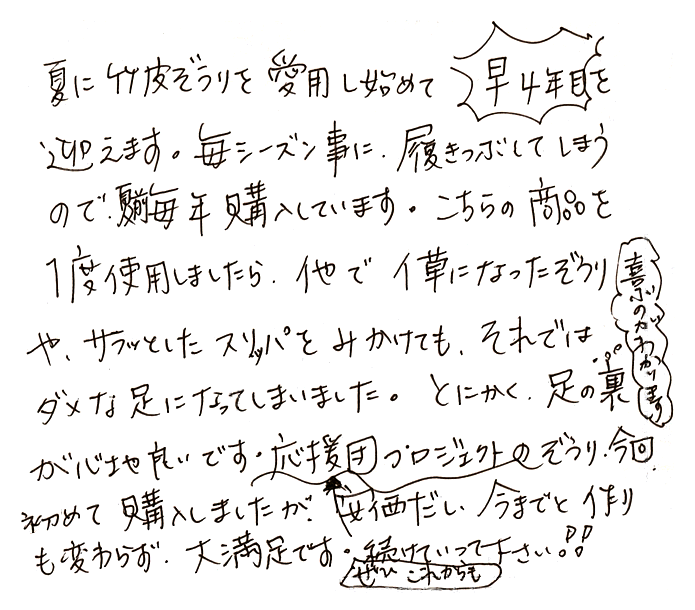 夏に竹皮ぞうりを愛用し始めて早4年目を
迎えます。毎シーズン事に、履きつぶしてしまう
ので、毎年購入しています。こちらの商品を
1度使用しましたら、他でイ草になったぞうり
や、サラッとしたスリッパをみかけても、それでは
ダメな足になってしまいました。とにかく、足の裏
喜ぶのがわかります
が心地良いです。応援団プロジェクトのぞうり、今回
初めて購入しましたが、安価だし、今までと作り
も変わらず、大満足です。続けていって下さい!!
ぜひこれからも